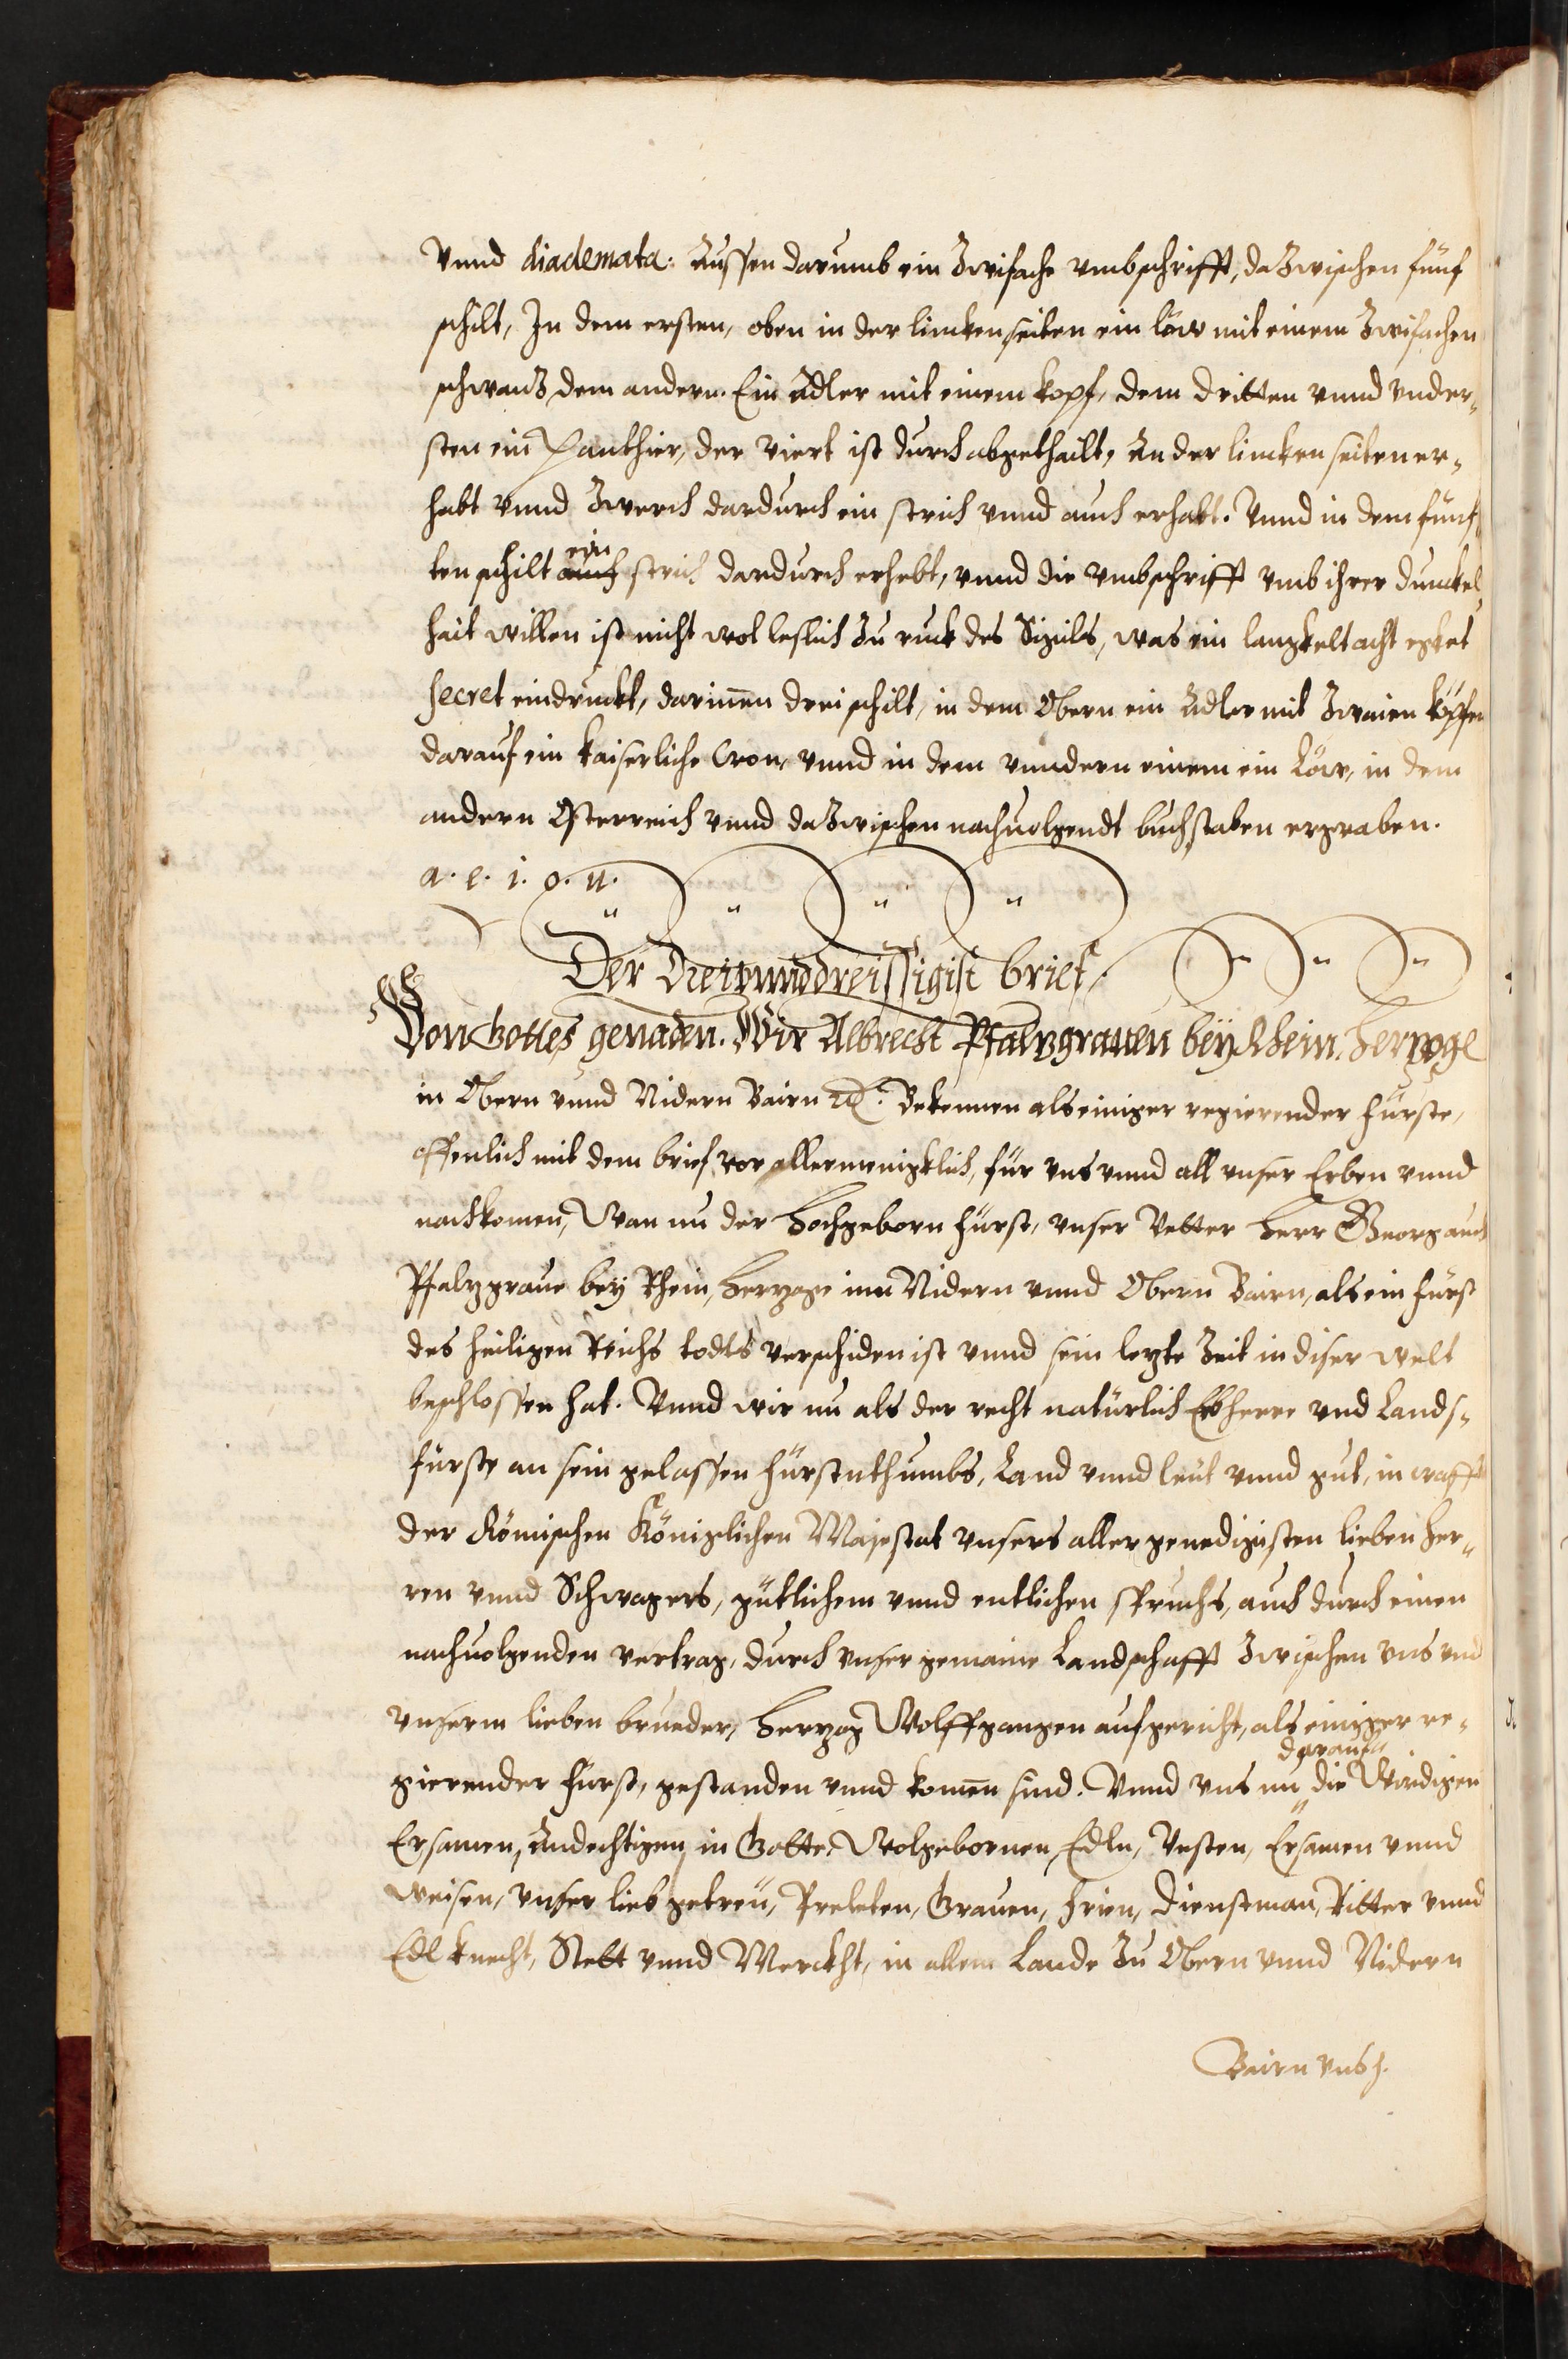 Vnnd diademata: Aussen darumb ein Zwifache vmbschrifft, daZwischen fünf
schilt, In dem ersten, oben in der lincken seiten ein löw mit einem Zwifachen
schwanz dem andern. Ein adler mit einem kopf, dem dritten vnnd vnder„
sten ein Panthier, der viert ist durch abgethailt, An der lincken seiten er„
habt vnnd Zwerch dardurch ein strich vnnd auch erhabt. Vnnd in dem fünf„
ten schilt ein strich dardurch erhebt, vnnd die vmbschrifft vmb ihrer dunckel„
hait willen ist nicht wol leslich Zu ruck des Sigils, was ein langkelt acht egket
secret eindruckt, darinnen drei schilt, in dem Obern ein Adler mit Zwaien köpfen
darauf ein kaiserliche Cron, vnnd in dem vnndern einem ein Löw, in dem
andern Osterreich vnnd daZwischen nachuolgendt buchstaben ergraben.
a. e. i. o. u.
Der Dreiunnddreissigist brief.
Von Gottes genaden. Wir Albrecht Pfalzgrauen bey Rhein. Herzoge
in Obern vnnd Nidern Bairn etc. Bekennen als einiger regierender fürste,
offenlich mit dem brief vor allermenigklich, für vns vnnd all vnser Erben vnnd
nachkomen, Wan nu der Hochgeborn fürst, vnser Vetter Herr Georg auch
Pfalzgraue bey Rhein, Herzoge inn Nidern vnnd Obern Bairn, als ein fürst
des heiligen Reichs todts verschiden ist vnnd sein lezte Zeit in diser welt
beschlossen hat. Vnnd wir nu als der recht natürlich Erbherre vnd Lands„
fürste an sein gelassen fürstnthumbs, Land vnnd leut vnnd gut, in crafft
der Römischen Königlichen Majestat vnsers aller genedigisten lieben Her„
ren vnnd Schwagers, gütlichem vnnd entlichen spruchs, auch durch einen
nachuolgenden vertrag, durch vnser gemaine Landschafft Zwischen vns vnd
vnserm lieben brueder, Herzog Wolffgangen aufgericht, als einiger re„
gierender fürst, gestanden vnnd komen sind. Vnnd vns nu darauf die Wirdigen
Ersamen, Andechtigen in Gotte, Wolgebornen Edln, Vesten, Ersamen vnnd
weisen, vnser lieb getreu, Prelaten, Grauen, frien, dienstman, Ritter vnnd
Edl knecht, Stett vnnd Merckht, in allem Lande Zu Obern vnnd Nidern
Bairn vns